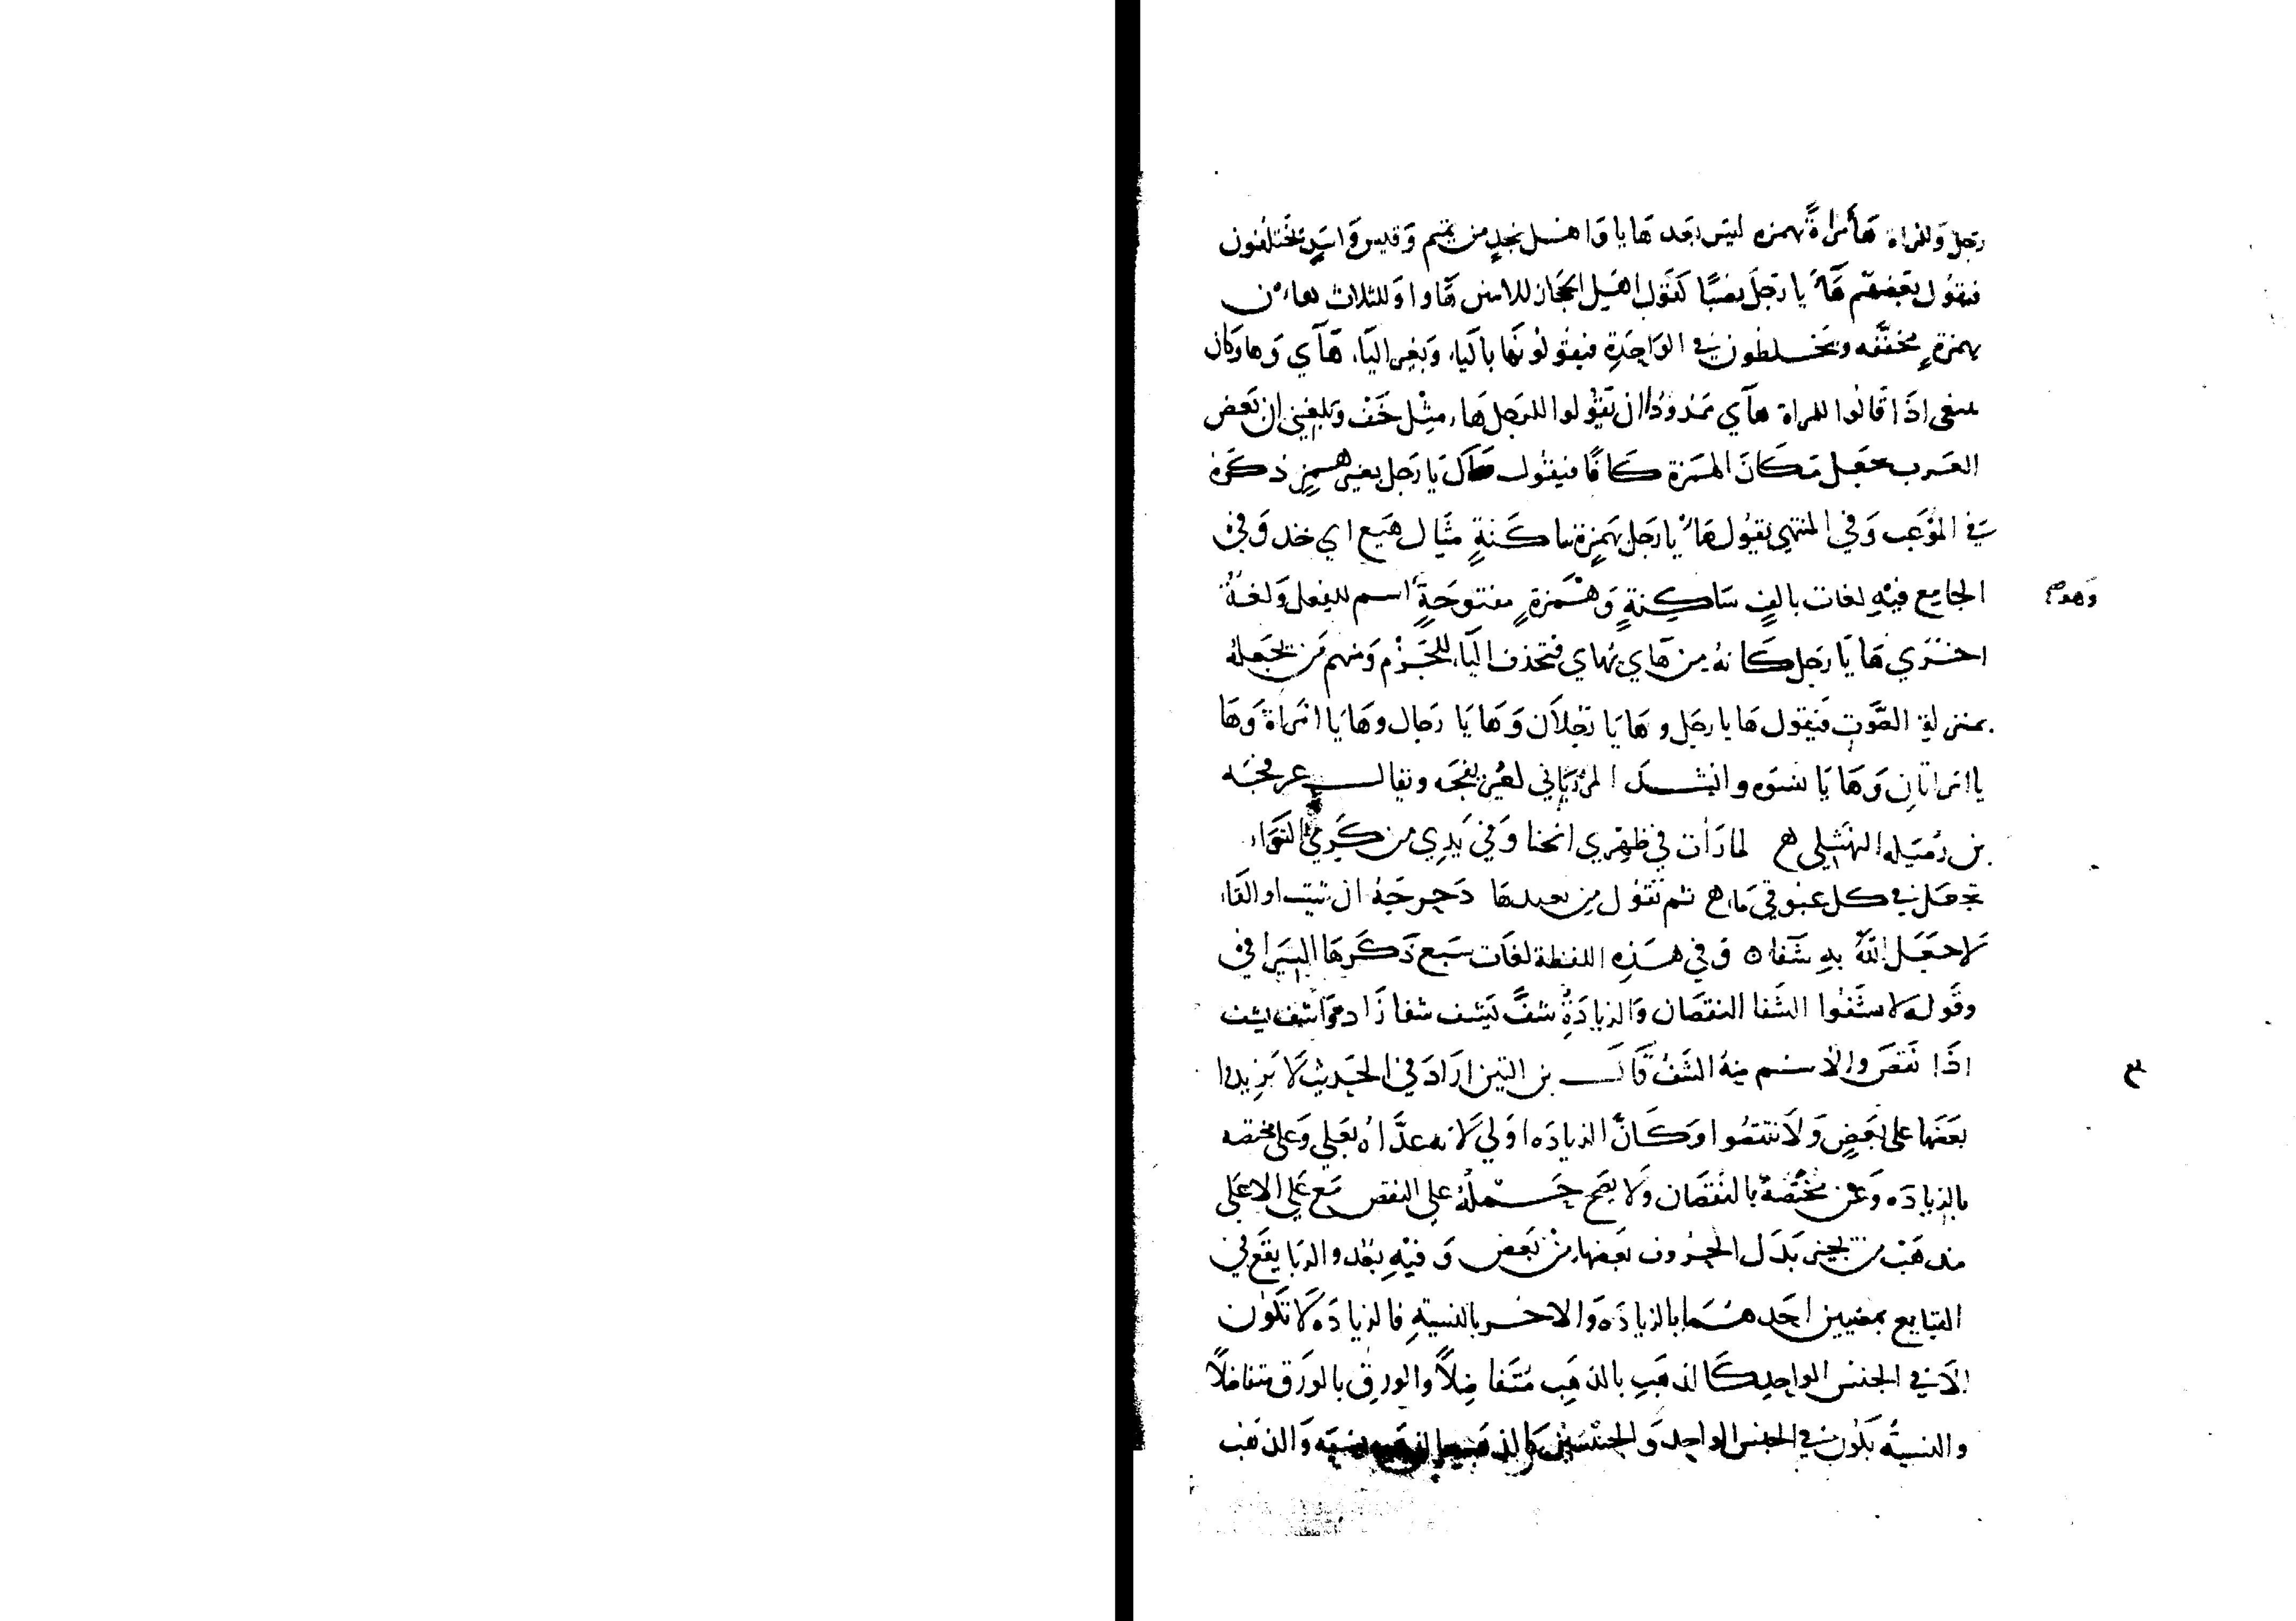 رجل وللمراة هَأمراةً بهمزه ليس بعد ها يا وَاهل نجدٍ من تميم وَقيس وَاسَدٍ يختلفون
فيقول بعضهم هَاءَ يا رَجل نصبًا كقول اهل الحجاز للاثنين هَاوا وَللثلاث هاءن
بهمزةٍ مخففه ويخلطون في الوَاحِدَةِ فيقولونها باليَاء وَبغير اليَاء هَآي وَها وَكان
ينبغي اذَا قالوا للمراة هآي ممدودًا ان يَقولوا للرجل هَاء مثل خَف وَبلغني ان بَعض
العرب يجعل مَكانَ الهمزة كافًا فيقول هَاكَ يَا رَجل بغير همزٍ ذكرَهُ
في الموْعَب وَفي المنتهي يقول هَاْ يا رَجل بهَمزة ساكنةٍ مثال هَع اي خذ وَفي
الجامع فيْهِ لغات بالفٍ سَاكِنةٍ وَهَمْزةٍ مفتوحَةٍ اسم للفعل وَلغةٌ
وَهو
اخرَي هَا يَا رَجل كَانهُ من هَاي يُهاي فتحذف اليَاء للجَزْم وَمنهم مَن يجعلهُ
بمنزلة الصَّوت فَيقول هَا يا رجل وهَا يَا رَجلاَن وَهَا يَا رجال وهَا يَا امْرَاة وَهَا
يا امراتَانِ وَهَا يَا نسوَه وانشد المرزبَاني لعمر بفجه ويقال عر فجَه
بن رُمَيله النهشلي هـ لما رَات في ظهْري انحنا وَفي يَدِي من كبَري التوَاء
تجعَل في كل عبوقي مَاء هـ ثم تقول من بعيد هَا دحرجَهُ ان شيت او القَاء
لا جعَل اللهُ بهِ شفَاء ه وَفي هذهِ اللفظة لغَات سَبع ذكرَها السيرافي
وقَوله لا تشفُوا الشفا النقصَان وَالزيادَةِ شفَّ يَشف شفا زَاد وَاشف يشف
اذَا نقصَ والاسم منهُ الشفُ قَال بن التين ارَادَ في الحَديث لا تزيدوا
بَعَضها على بَعضٍ وَلَا تنقصُوا وَكَانَّ الزيادَه اوَلي لَانه عدَّاهُ بعَلي وَعلي مختصه
بالزيادَه وَعَن مُخْتَصَة بالنقصَان وَلَا يصح حَملُهُ علي النقص مَع عَلي الا علي
مذهَب من يجيز بَدَل الحروف بَعضها من بَعض وَفيْهِ بُعْد والربَا يقَع في
التبايع بمَعنيين احَدهُمَا بالزيادَه وَالاخر بالنسيةِ فالزيادَه لَا تكون
الَا في الجنس الواحِد كَالذهَبِ بالذهَب مُتَفاضِلاً والورِق بالورَق متفاضلاً
والنسيةُ يكون في الجنس الواحد وَالجنسَيْن كالذهَب بالذهب نسيَه وَالذهَب